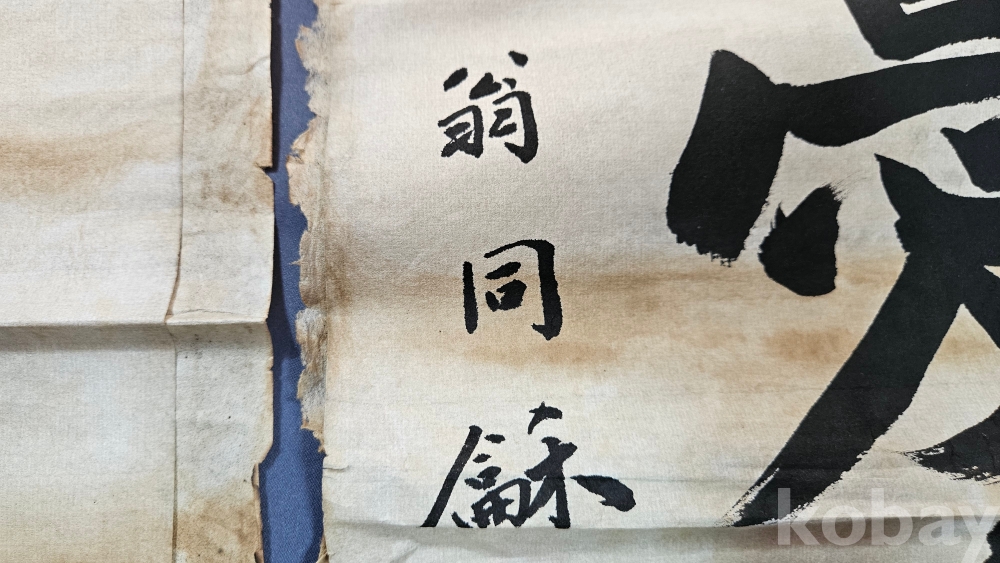 翁同龢
kobay